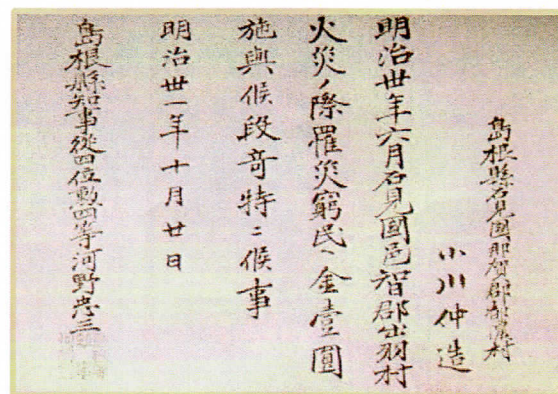 島根縣石見國那賀郡都濃村
小川仲造
明治丗年六月石見國邑智郡出羽村
火災ノ際罹災窮民ヘ金壹圓
施與候段奇特ニ候事
明治丗一年十月廿日
島根縣知事從四位勲四等河野忠三